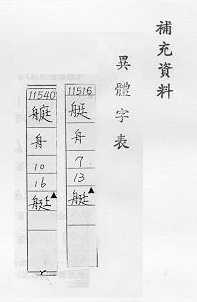 補充資料
異體字表
11516
艇
舟
7
13
艇
11540
舟
10
16